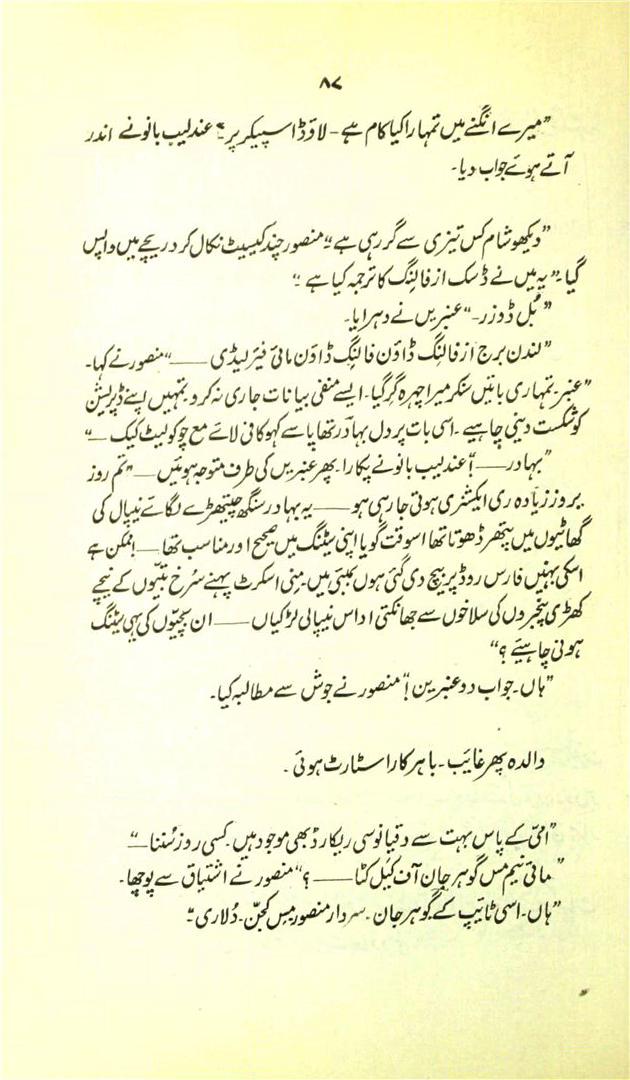 ۸۷
”میرے انگنے میں تمہارا کیا کام ہے - لاؤڈ اسپیکر پر“ عندلیب بانو نے اندر
آتے ہوئے جواب دیا۔
”دیکھو شام کس تیزی سے گر رہی ہے“ منصور چند کیسٹ نکال کر دریچے میں واپس
گیا۔ ”یہ میں نے ڈسک از فالنگ کا ترجمہ کیا ہے“
”بُل ڈوزر۔“ عنبریں نے دہرایا۔
”لندن برج از فالنگ ڈاؤن فالنگ ڈاؤن مائی فیئر لیڈی ——“ منصور نے کہا۔
”عنبر۔ تمہاری باتیں سنکر میرا چہرہ گر گیا۔ ایسے منفی بیانات جاری نہ کرو۔ تمہیں اپنے ڈپریشن
کو شکست دینی چاہیے۔ اسی بات پر دل بہادر تھاپا سے کہو کافی لائے مع چوکولیٹ کیک —“
”بہادر —— !“ عندلیب بانو نے پکارا۔ پھر عنبریں کی طرف متوجہ ہوئیں —— ”تم روز
بروز زیادہ ری ایکشنری ہوتی جا رہی ہو —— یہ بہادر سنگھ چیتھڑے لگائے نیپال کی
گھاٹیوں میں پتھر ڈھوتا تھا اسوقت گویا اپنی سیٹنگ میں صحیح اور مناسب تھا —— ! ممکن ہے
اسکی بہنیں فارس روڈ پر بیچ دی گئی ہوں بمبئی میں۔ مِنی اسکرٹ پہنے سُرخ بتیّوں کے نیچے
کھڑی پنجروں کی سلاخوں سے جھانکتی اداس نیپالی لڑکیاں —— ان بچیّوں کی یہی سیٹنگ
ہونی چاہیئے ؟“
”ہاں۔ جواب دو عنبرین !“ منصور نے جوش سے مطالبہ کیا۔
والدہ پھر غایٔب۔ باہر کار اسٹارٹ ہوئی۔
”امّی کے پاس بہت سے دقیانوسی ریکارڈ بھی موجود ہیں۔ کسی روز سُننا —“
”مائی نیم مس گوہر جان آف کیل کٹا —— ؟“ منصور نے اشتیاق سے پوچھا۔
”ہاں۔ اسی ٹایٔپ کے گوہر جان۔ سردار منصور مِس کجّن۔ دُلاری“